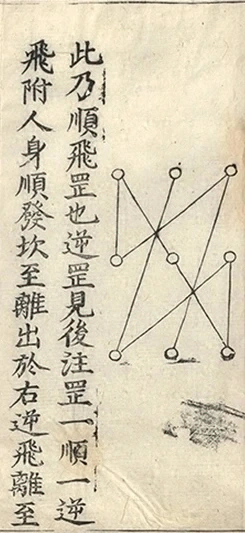 此乃順飛罡也逆罡見後注罡一順一逆
飛附人身順發坎至離出於右逆飛離至